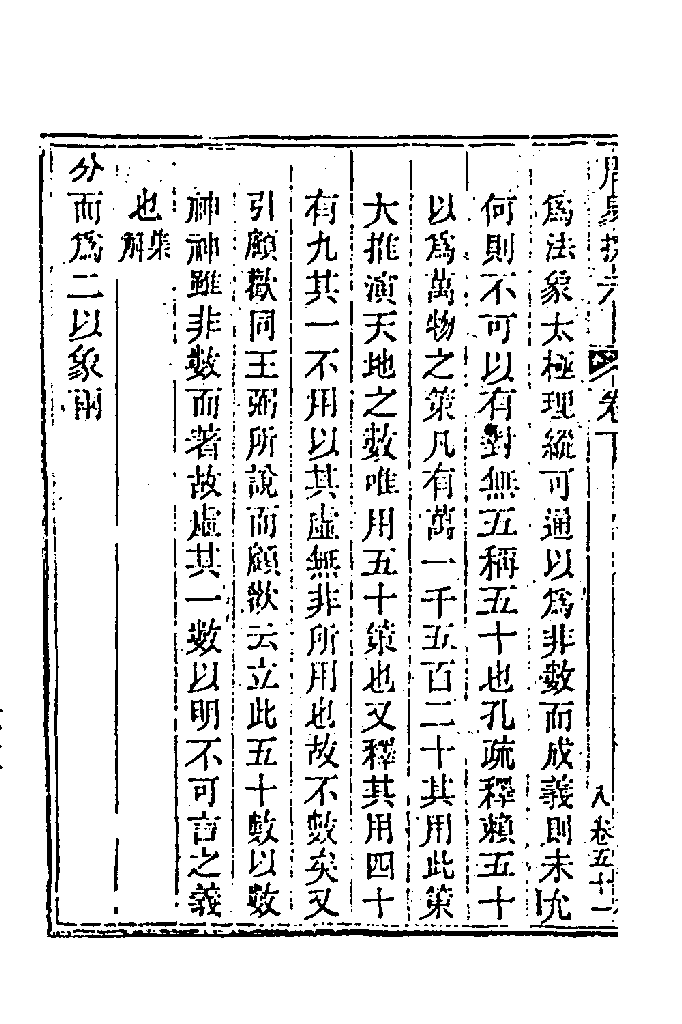 卷下
卷五十一
爲法象太極理縱可通以爲非數而成義則未允
何則不可以有對無五稱五十也孔疏釋賴五十
以爲萬物之策凡有萬一千五百二十其用此策
大推演天地之數唯用五十策也又釋其用四十
有九其一不用以其虛無非所用也故不數矣又
引顧歡同王弼所說而顧歡云立此五十數以數
神神雖非數而著故虛其一數以明不可言之義
也集解
分而爲二以象兩